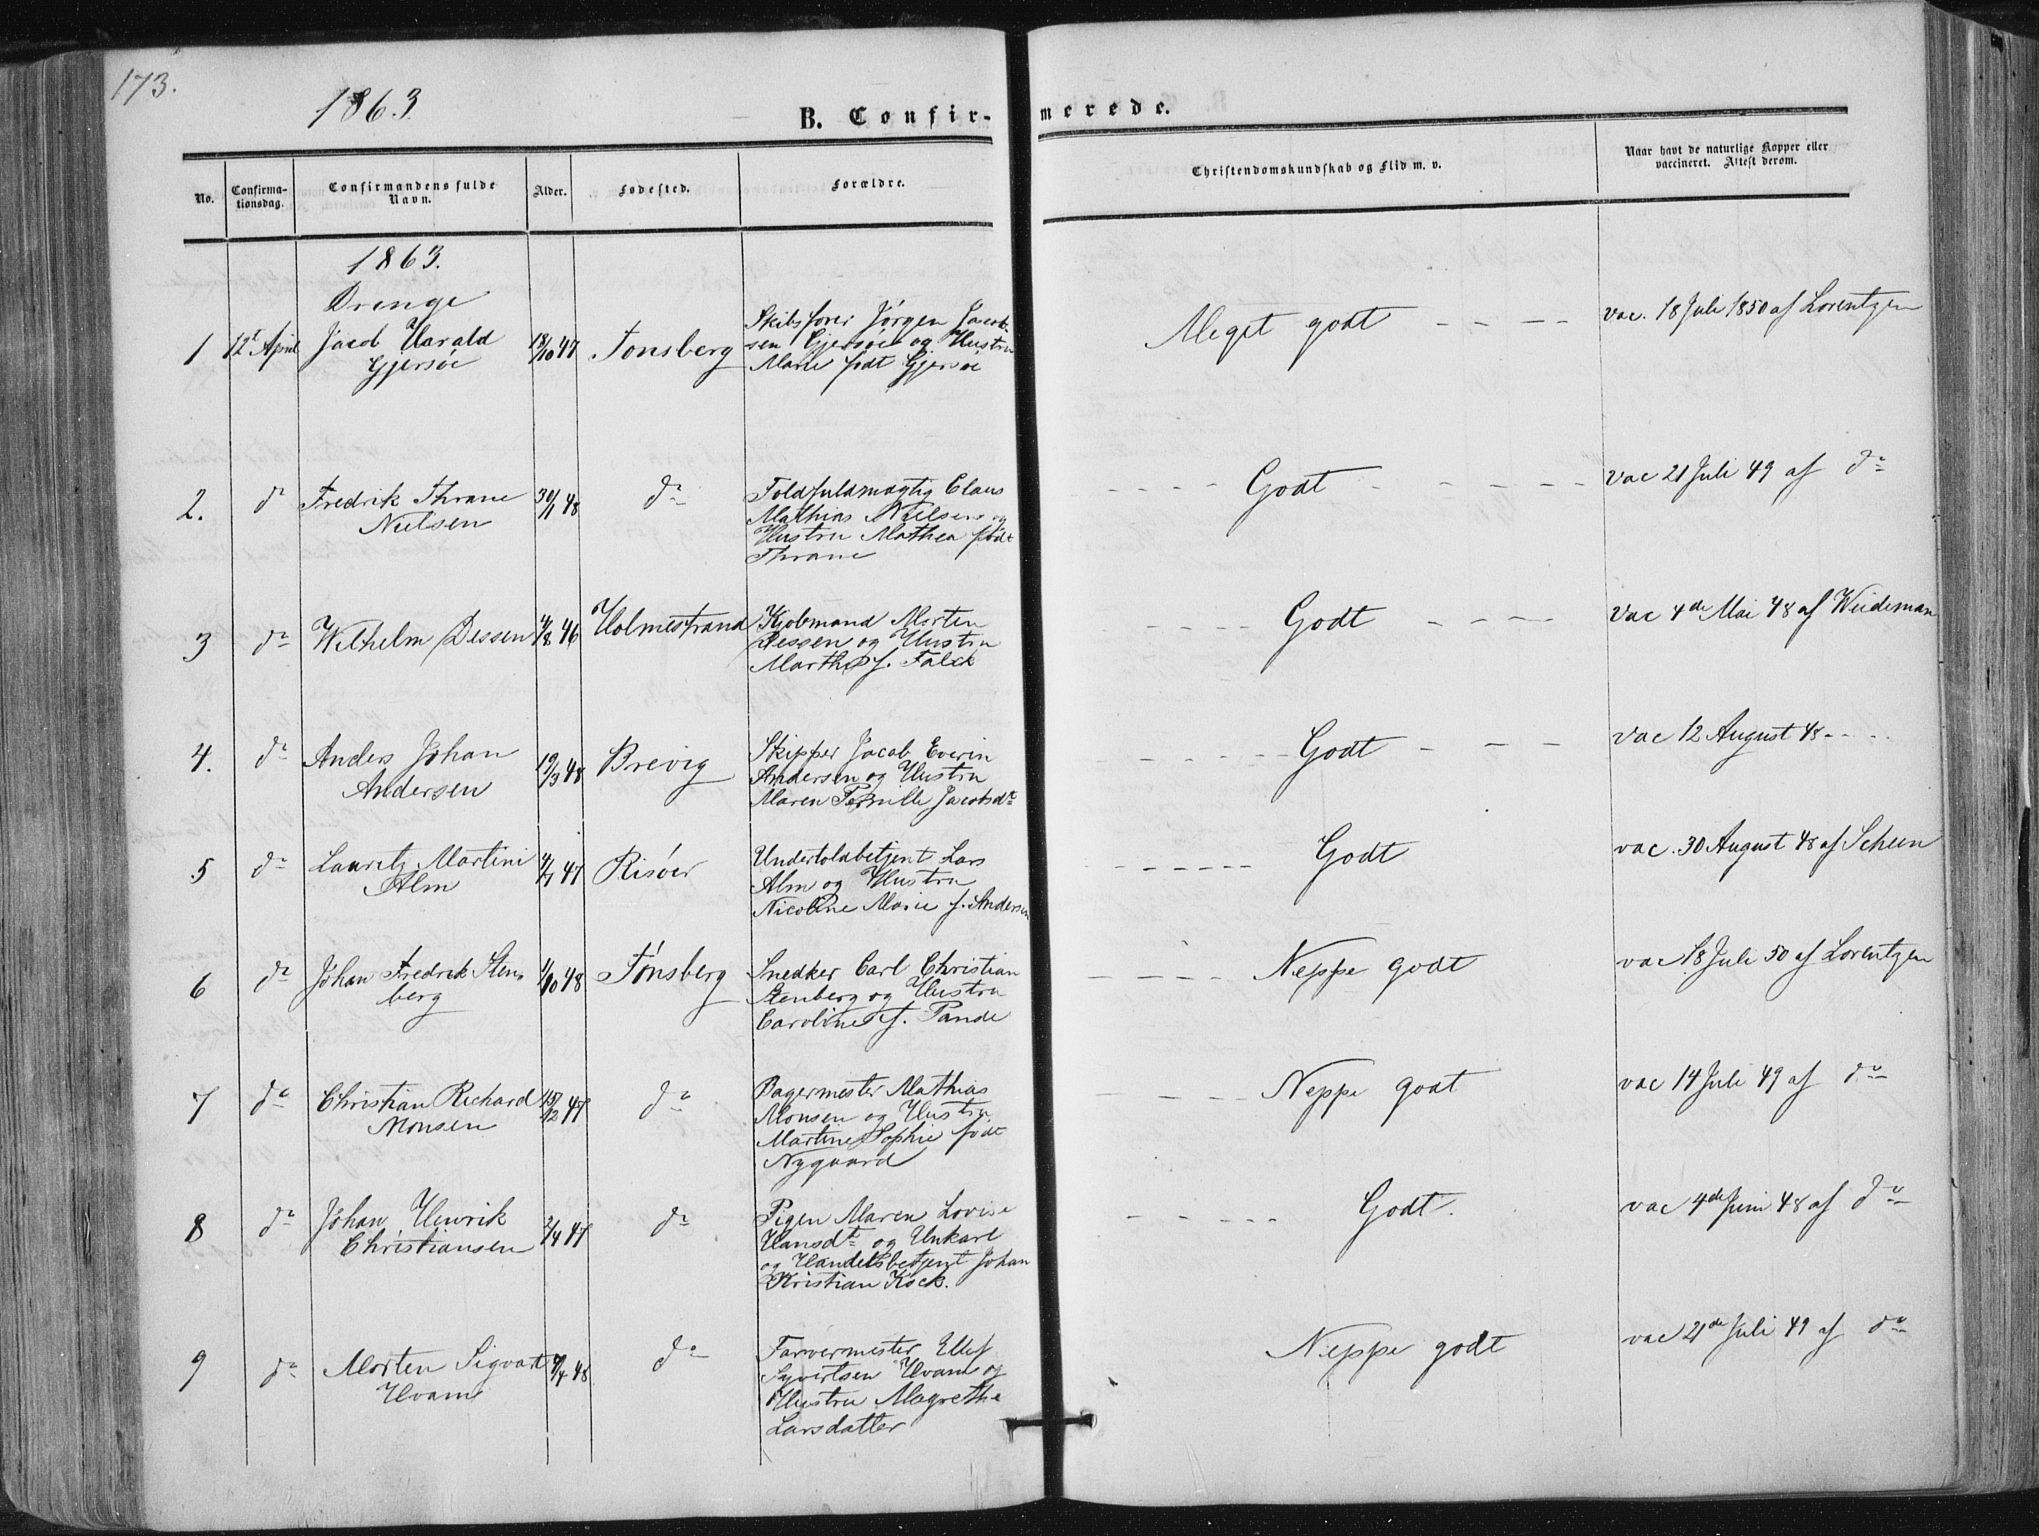 173.
1863
B. Confir-
merede.
No.
Confirma-
tionsdag.
Confirmandens fulde
Navn.
Alder.
Fødested.
Forældre.
Christendomskundskab og Flid m. v.
Naar havt de naturlige Kopper eller
vaccineret. Attest derom.
1863.
Drenge
1 12t April Jacob Harald
Gjersøe
18/10 47 Tønsberg
Skibsfører Jørgen Jacob-
sen Gjersøe og Hustru
Marie født Gjersøe
Meget godt - - - -
vac. 18 Juli 1850 af Lorentzen
2. do Fredrik Thrane
Nielsen
30/1 48 do
Toldfuldmægtig Claus
Mathias Nielsen og
Hustru Mathea født
Thrane
- - - - Godt - - - - - -
vac 21 Juli 49 af do
3 do Wilhelm Dessen
/8 46 Holmestrand
Kjøbmand Morten
Dessen og Hustru
Marthe f. Falck
- - - - Godt - - - -
vac 4de Mai 48 af Weideman
4. do Anders Johan
Andersen
19/3 48 Brevig
Skipper Jacob Everin
Andersen og Hustru
Maren Pernille Jacobsdt
- - - - - Godt - - -
vac 12 August 48 - - - -
5 do Lauritz Martini
Alm
47 Risøer
Undertoldbetjent Lars
Alm og Hustru
Nicoline Marie f. Andersen
- - - - - Godt
vac. 30 August 48 af Scheen
6 do Johan Fredrik Sten
berg
/10 48 Tønsberg
Snedker Carl Christian
Stenberg og Hustru
Caroline f. Pande
- - - - Neppe godt
vac 18 Juli 50 af Lorentzen
7 do Christian Richard
Monsen
/12 47 do
Bagermester Mathias
Monsen og Hustru
Martine Sophie født
Nygaard
- - - - - Neppe godt
vac 14 Juli 49 af do
8 do Johan Henrik
Christiansen
/4 47 do
Pigen Maren Lovise
Hansdt og Unkarl
og Handelsbetjent Johan
Kristian Kock.
- - - - - Godt.
vac 4de Juni 48 af do
9 do Morten Sigvart
Hvam
/4 48 do
Farvermester Ellef
Syvertsen Hvam og
Hustru Magrethe
Larsdatter
Neppe godt
vac 21de Juli 49 af do